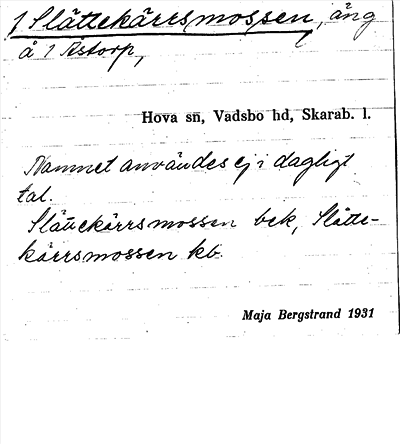 1 Slättekärrsmossen, äng
å 1 Åstorp,
Hova sn, Vadsbo hd, Skarab. l.
Namnet användes ej i dagligt
tal.
Slättekärrsmossen bek, Slätte-
kärrsmossen kb.
Maja Bergstrand 1931